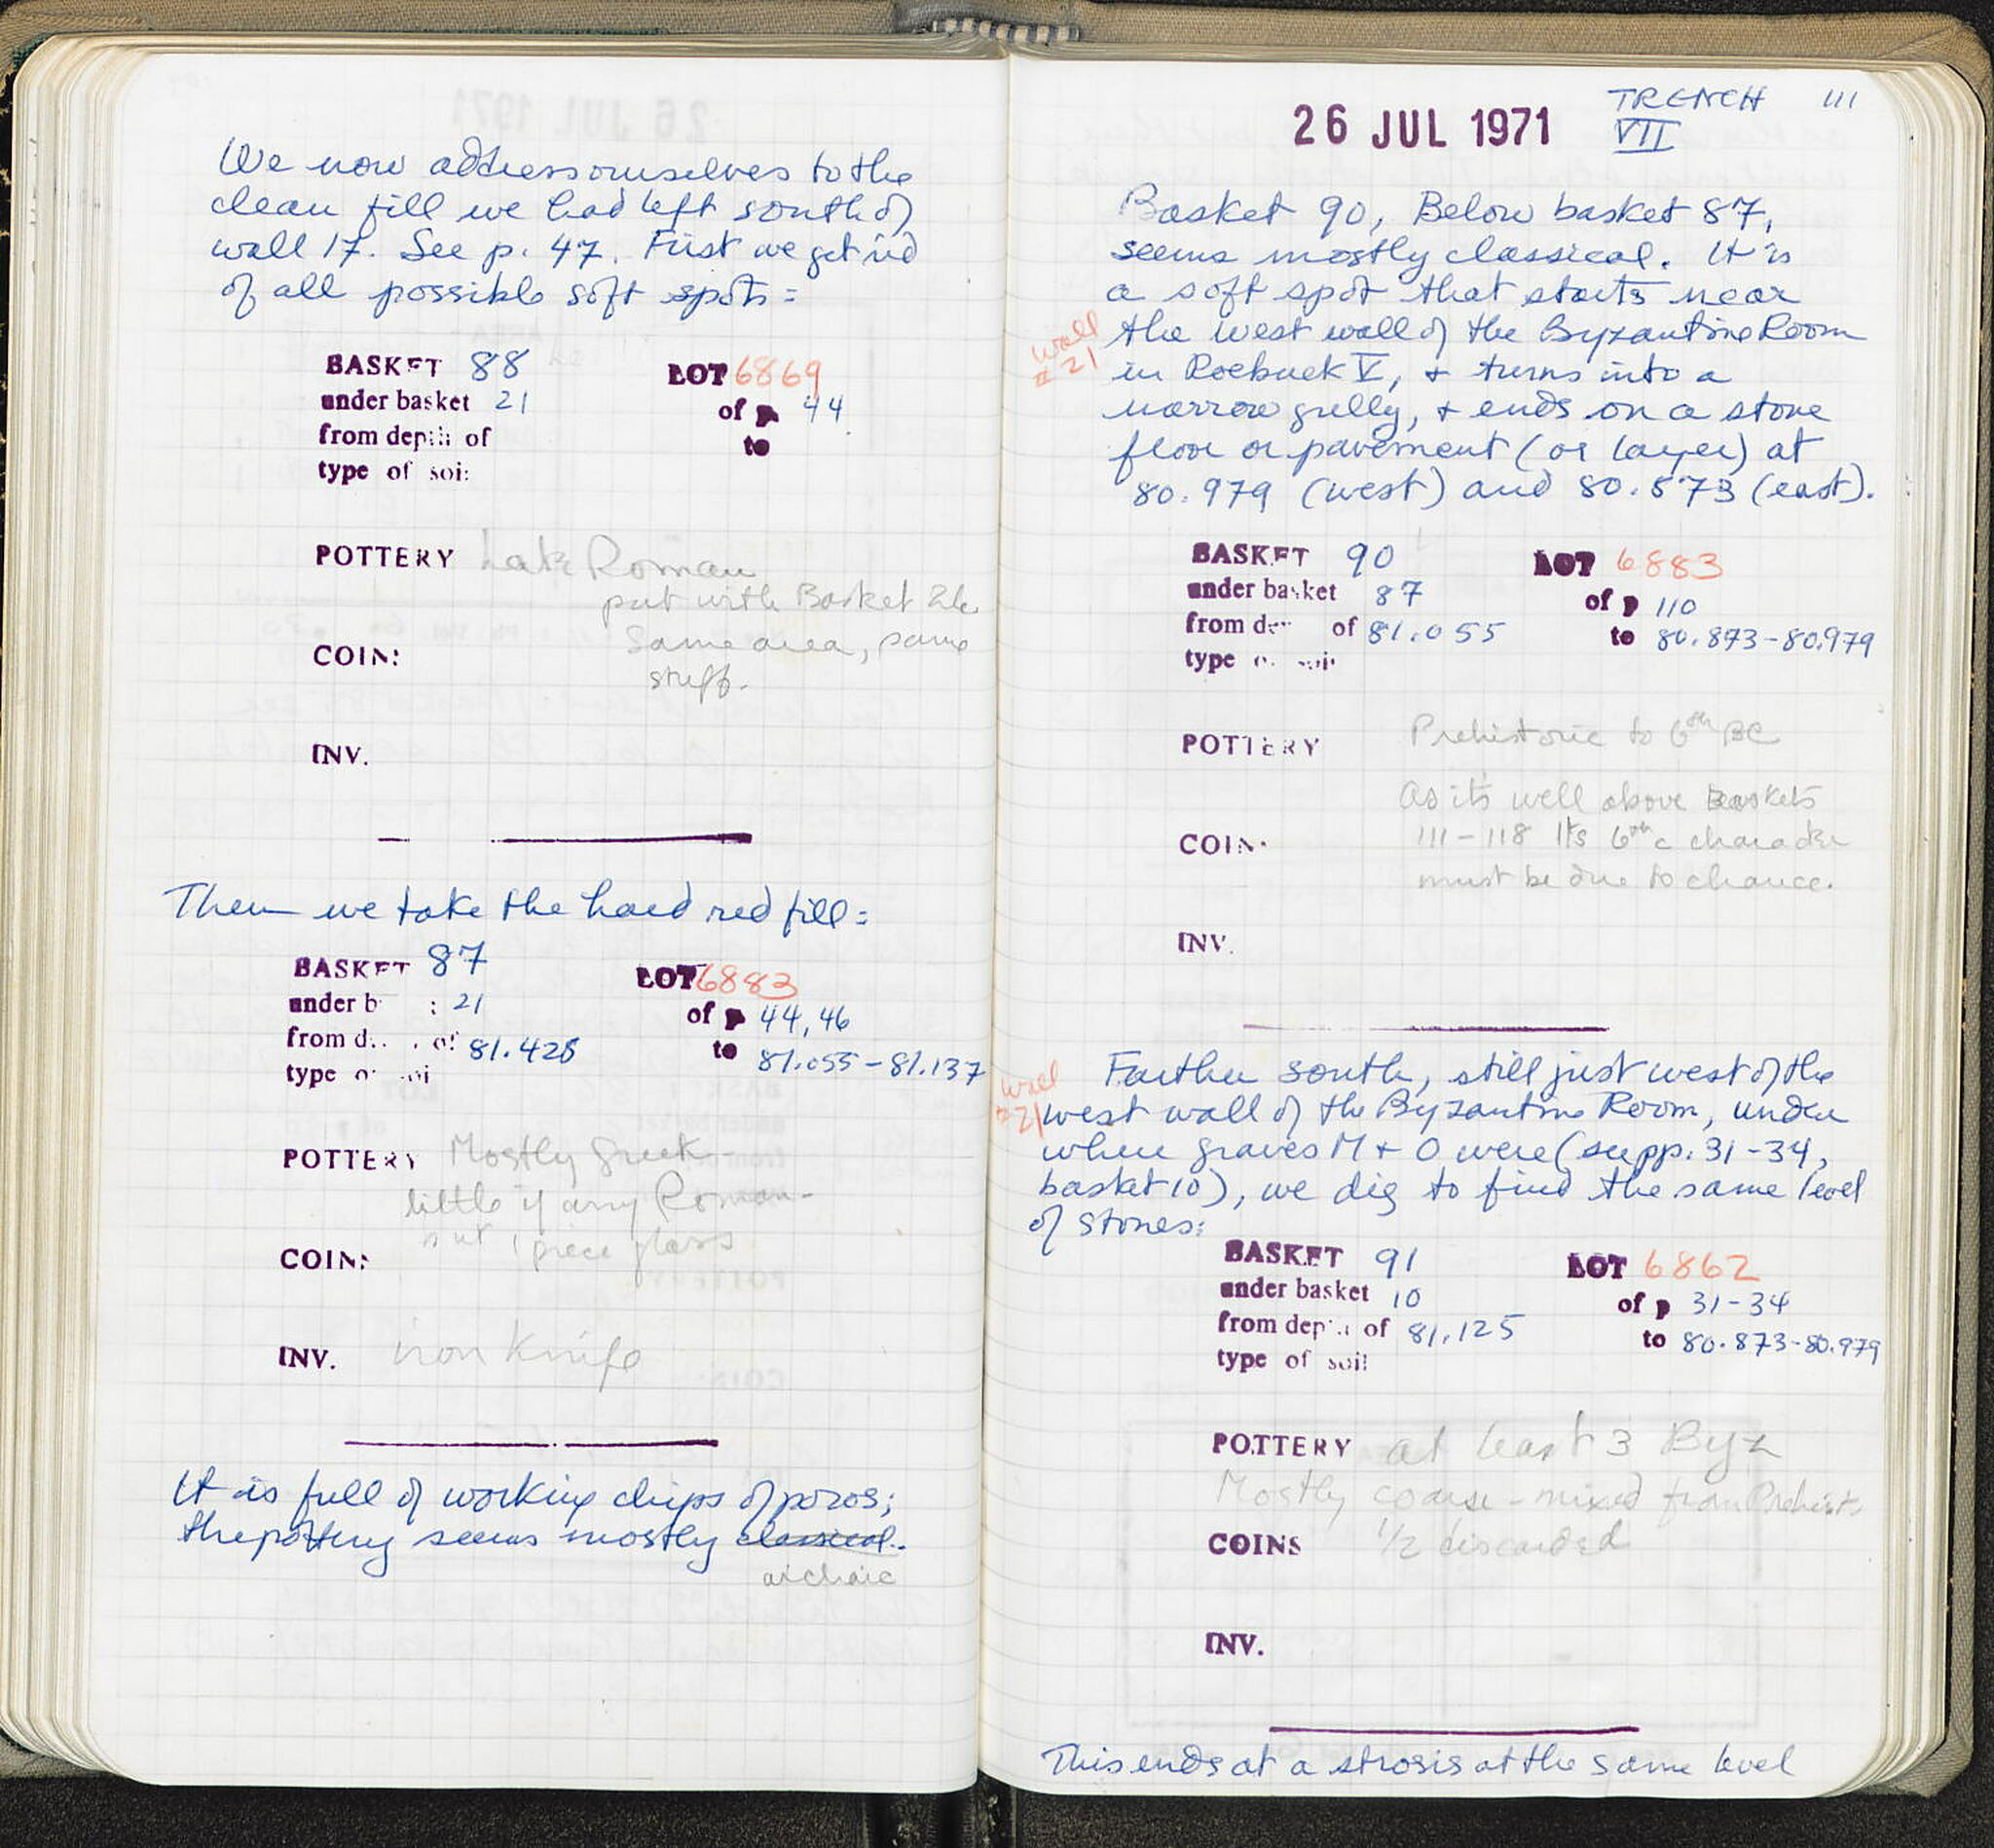 We now address ourselves to the
clean fill we had left south of
wall 17. See p. 47. First we get rid
of all possible soft spots =
BASKET 88 LOT 6869
under basket 21 of p 44
from depth of to
type of soil
POTTERY Late Roman
put with Basket 26
Same area, same
COIN:
stuff.
INV.
Then we take the hard red fill =
BASKET 87 LOT 6883
under b : 21 of p 44, 46
from d of 81.428 to 81.055-81.137
type of soi
POTTERY Mostly Greek -
little if any Roman -
but 1 piece glass
COIN:
INV. iron knife
It is full of working chips of poros;
the pottery seems mostly classical.
archaic
26 JUL 1971 TRENCH 111
VII
Basket 90, Below basket 87,
seems mostly classical. It is
a soft spot that starts near
wall the west wall of the Byzantine Room
# 21 in Roebuck V, + turns into a
narrow gully, + ends on a stone
floor or pavement (or layer) at
80.979 (west) and 80.873 (east).
BASKET 90 LOT 6883
under basket 87 of p 110
from dep of 81.055 to 80.873-80.979
type of soil
POTTERY Prehistoric to 6th BC
As its well above Baskets
COIN: 111-118 Its 6th c character
must be due to chance.
INV.
wall Farther south, still just west of the
# 21 west wall of the Byzantine Room, under
where graves M + O were (see pp. 31-34,
basket 10), we dig to find the same level
of stones:
BASKET 91 LOT 6862
under basket 10 of p 31-34
from depth of 81.125 to 80.873-80.979
type of soil
POTTERY at least 3 Byz
Mostly coarse - mixed from Prehist
COINS 1/2 discarded
INV.
This ends at a strosis at the same level